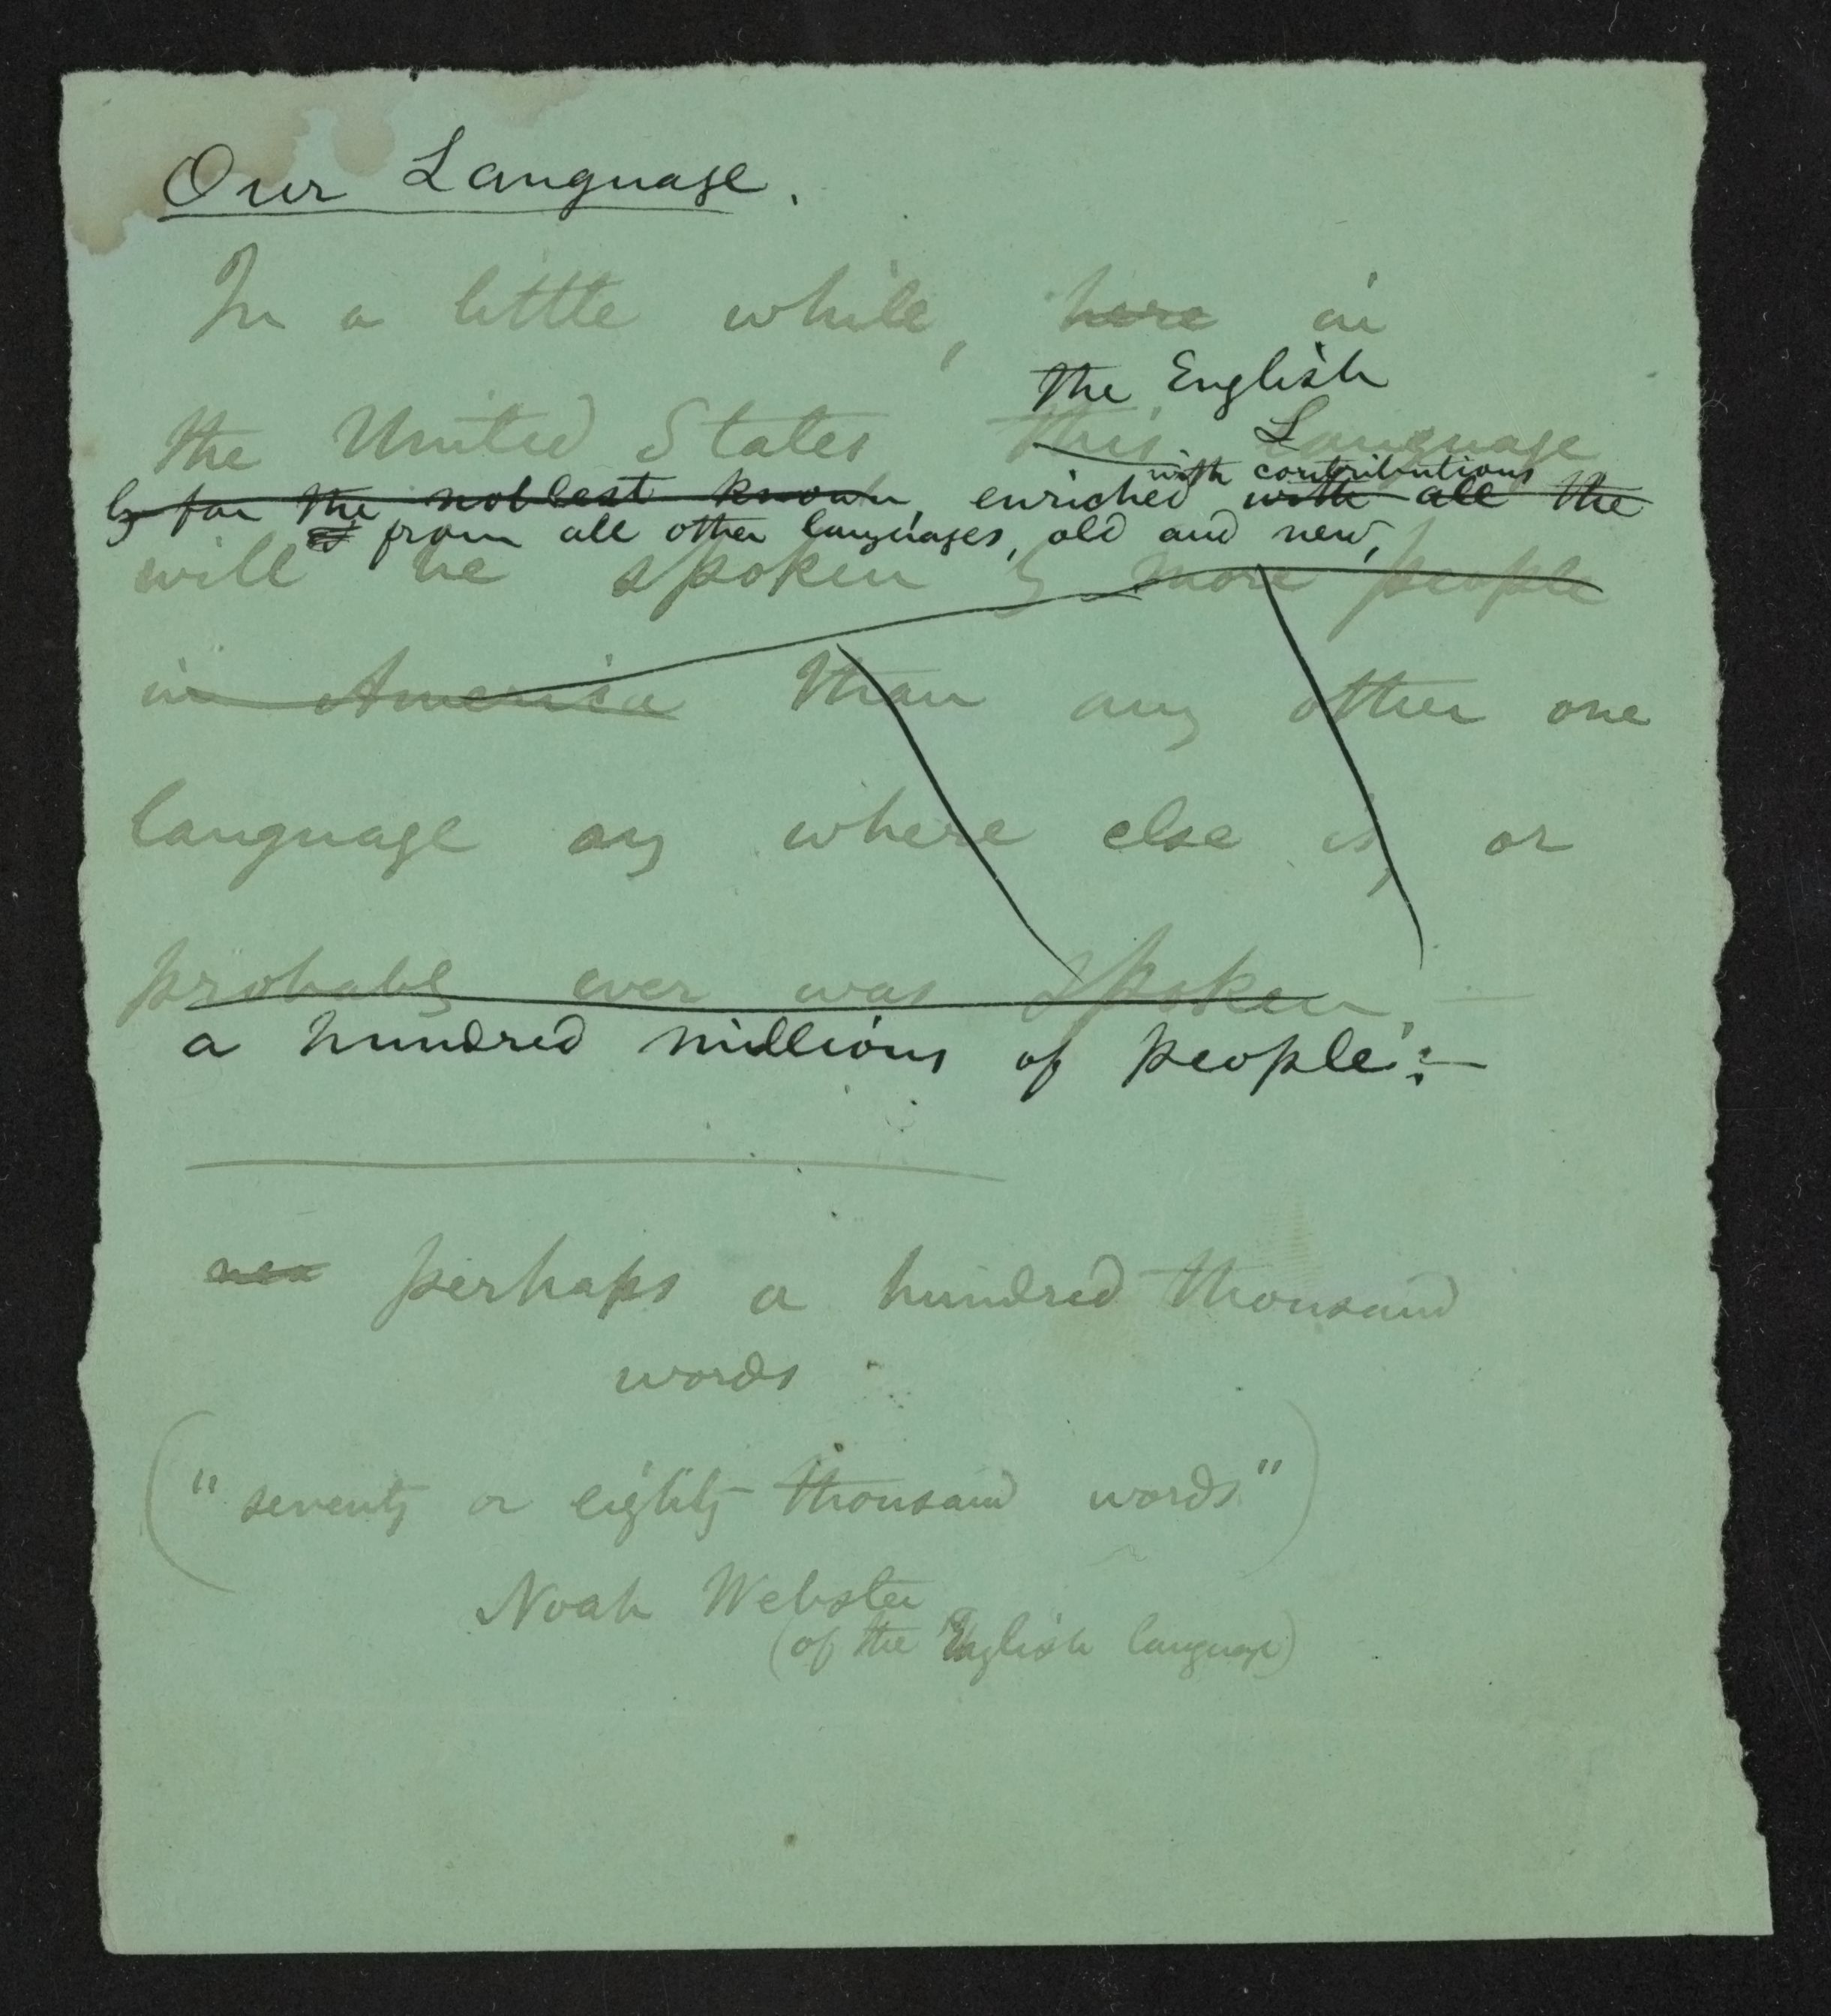 Our Language.
In a little while, here in
the English
the United States this Language
with contributions
by far the noblest known, enriched with all the
from all other languages, old and new,
will be spoken by more people
in America than any other one
language any where else is, or
probably ever was spoken.—
a hundred millions of people:—
perhaps a hundred thousand
words
("seventy or eighty thousand words")
Noah Webster
(of the English language)